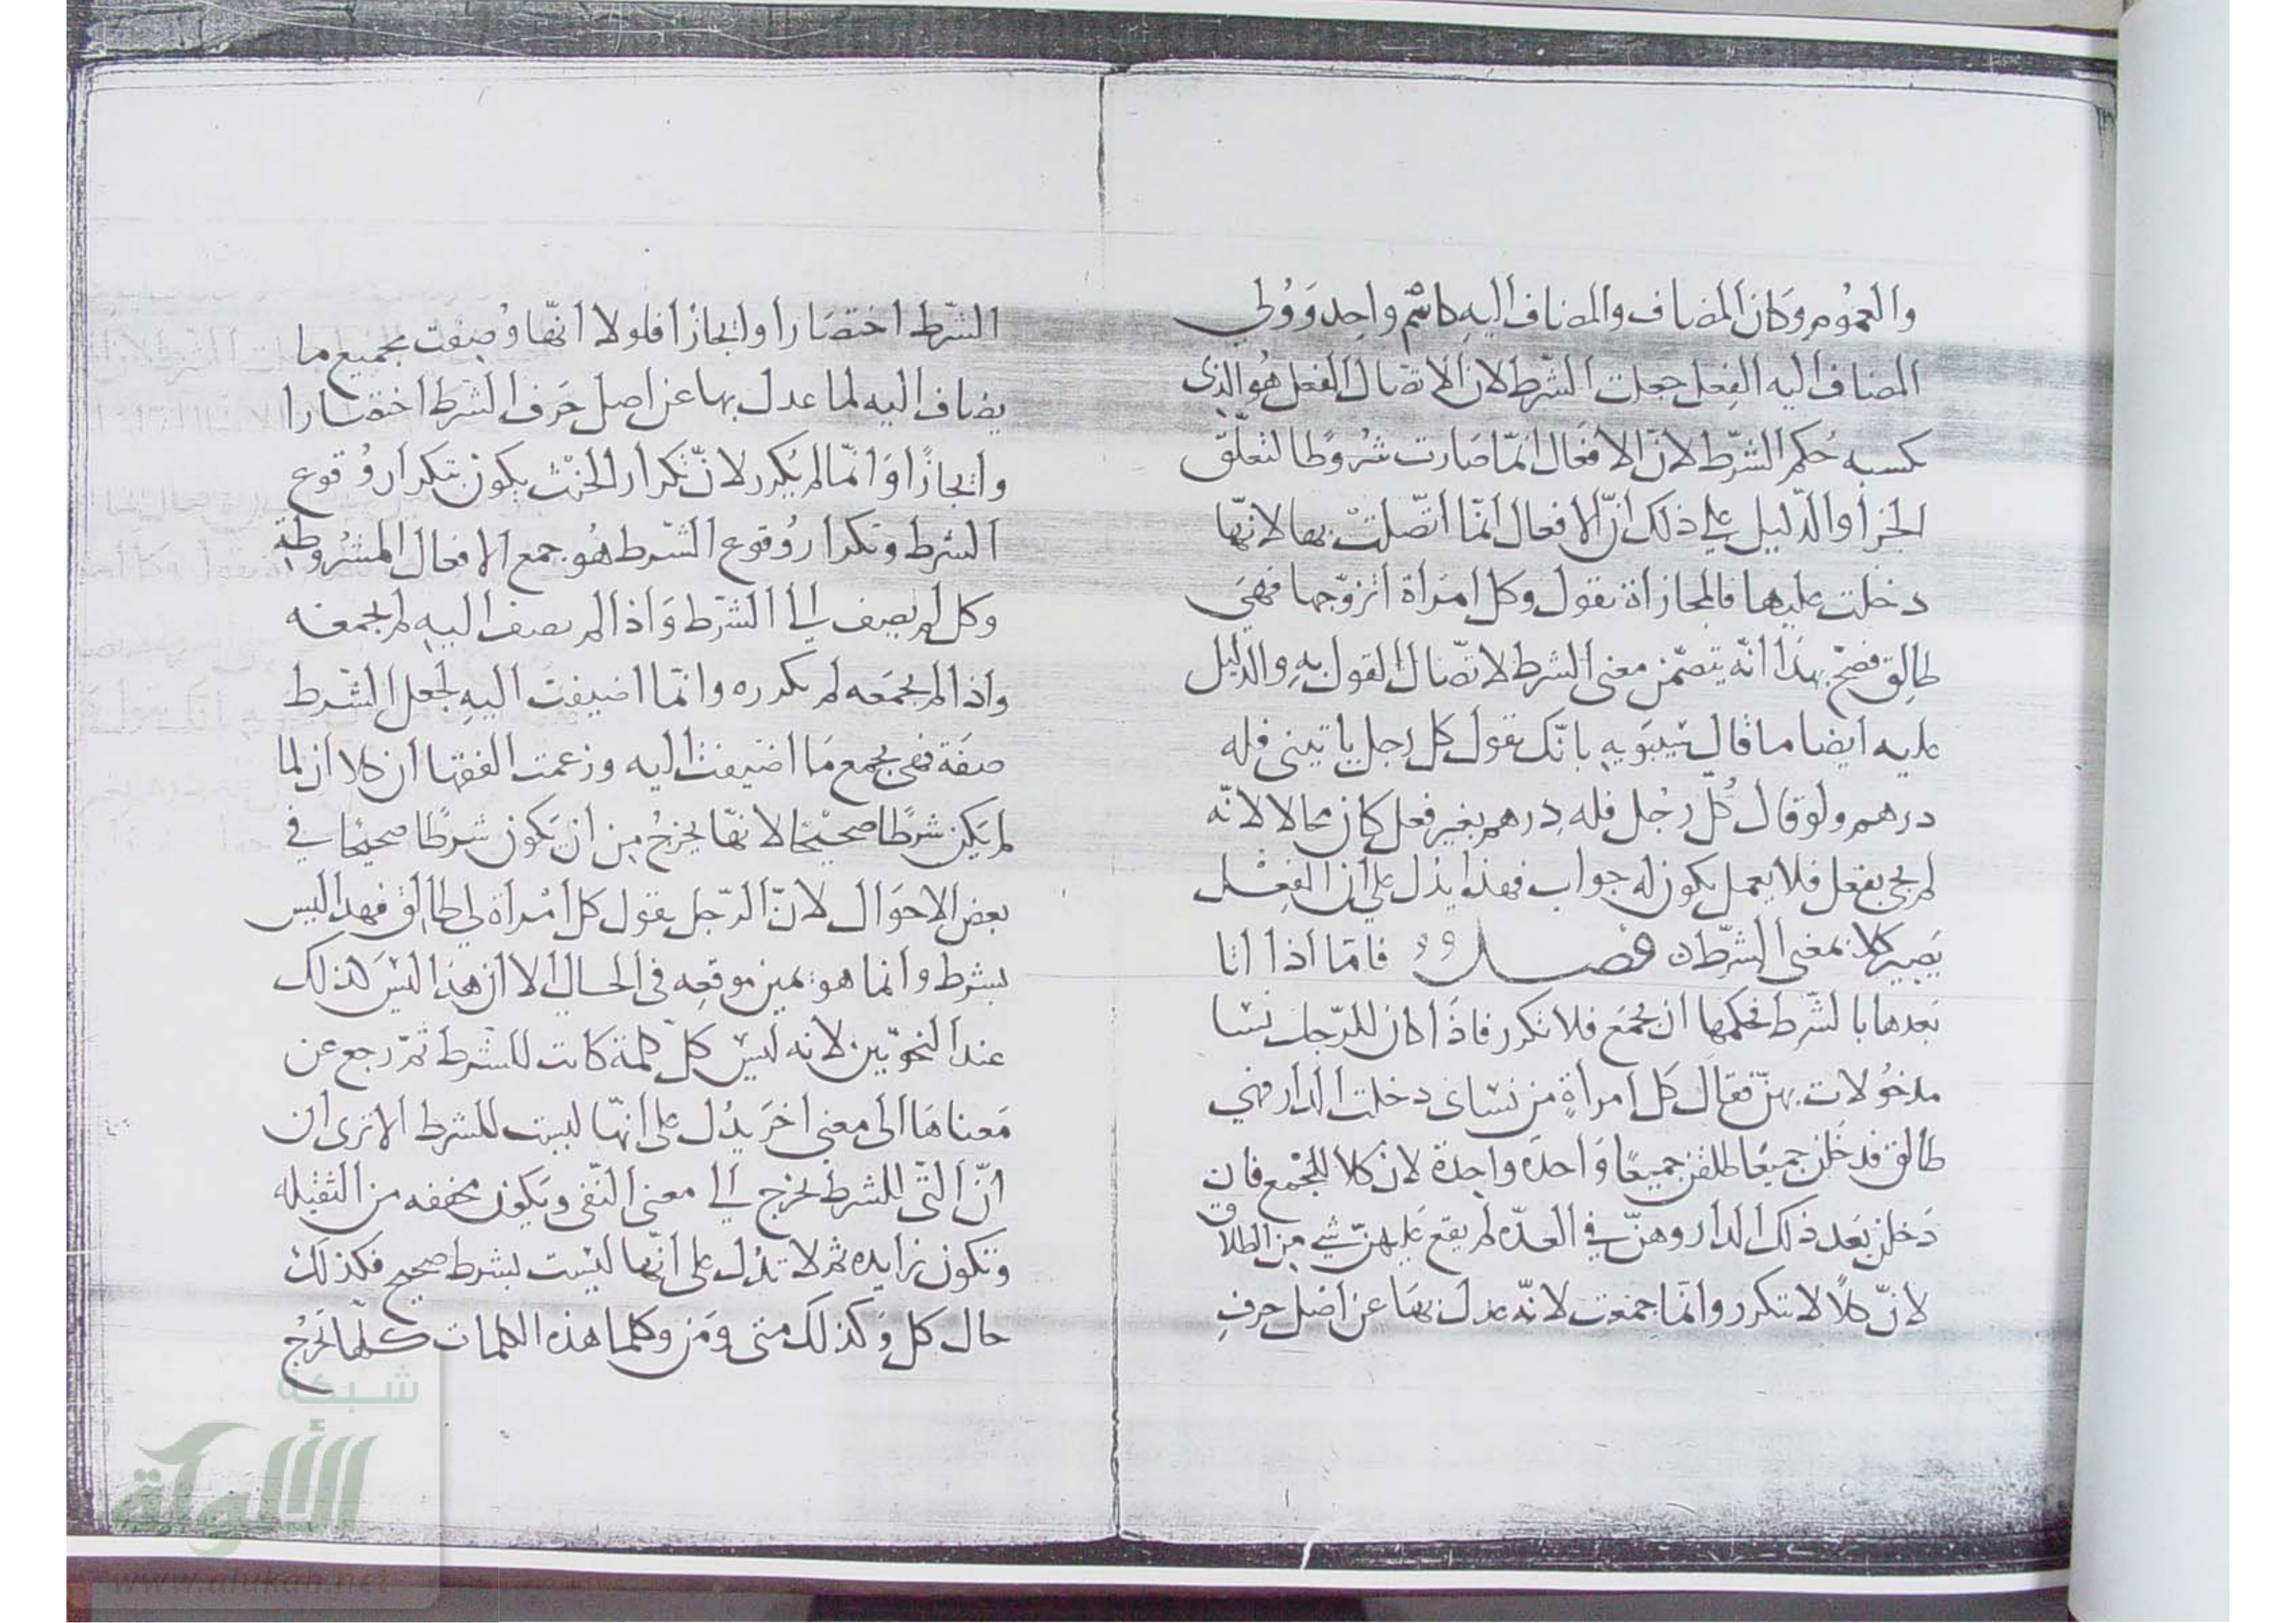 والعموم وكان المضاف والمضاف اليه كاسم واحد وولي
المضاف اليه الفعل جعلت الشرط لان الاتصال الفعل هو الذي
كسبه حكم الشرط لان الافعال انما صارت شروطا لتعلق
الجزا والدليل على ذلك ان الافعال انما اتصلت بها لانها
دخلت عليها فالمجازاة تقول وكل امراة اتزوجها فهي
طالق فصح بهذا انه يتضمن معنى الشرط لاتصال القول به والدليل
عليه ايضا ما قال سيبويه بانك تقول كل رجل ياتيني فله
درهم ولو قال كل رجل فله درهم بغير فعل كان محالا لانه
لم يجى بفعل فلا يعمل يكون له جواب فهذا يدل على ان الفعل
يصير كلا بمعنى الشرط فصل فاما اذا اتا
بعدها بالشرط فحكمها ان يجمع فلا تكرر فاذا كان للرجل نسا
مدخولات بهن فقال كل امراة من نساى دخلت الدار فهي
طالق فدخلن جميعا طلقن جميعا واحدة واحدة لان كلا للجمع فان
دخلن بعد ذلك الدار وهن في العدة لم يقع عليهن شي من الطلاق
لان كلا لا تتكرر وانما جمعت لانه عدل بها عن اصل حرف
الشرط اختصارا وايجازا فلولا انها وصفت بجميع ما
يضاف اليه لما عدل بها عن اصل حرف الشرط اختصارا
وايجازا وانما لم يكرر لان تكرار الحنث يكون بتكرار وقوع
الشرط وتكرار وقوع الشرط هو جمع الافعال المشروطة
وكل لم يضف الى الشرط واذا لم يضف اليه لم يجمعه
واذا لم يجمعه لم يكرره وانما اضيفت اليه لجعل الشرط
صفة فهى يجمع ما اضيفت اليه وزعمت الفقها ان كلا ان لما
لم يكن شرطا صحيحا لانها يخرج من ان يكون شرطا صحيحا في
بعض الاحوال لان الرجل يقول كل امراة لي طالق فهذا ليس
بشرط وانما هو يمين موقعه في الحال الا ان هذا ليس كذلك
عند النحويين لانه ليس كل كلمة كانت للشرط ثم رجع عن
معناها الى معنى اخر يدل على انها ليست للشرط الا ترى ان
ان التي للشرط تخرج الى معنى النفى وتكون مخففه من الثقيله
وتكون زايده ثم لا تدل على انها ليست بشرط صحيح فكذلك
حال كل وكذلك متى ومن وكلما هذه الكلمات كلها تخرج
شبكة
الألوكة
www.alukah.net